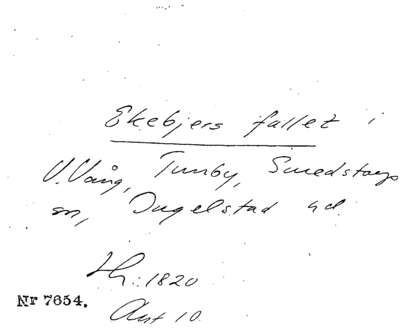 Ekebjers fallet i
V. Vång, Tunby, Smedstorps
sn, Ingelstad hd.
Hs: 1820
Nr 7654.
Akt 10.